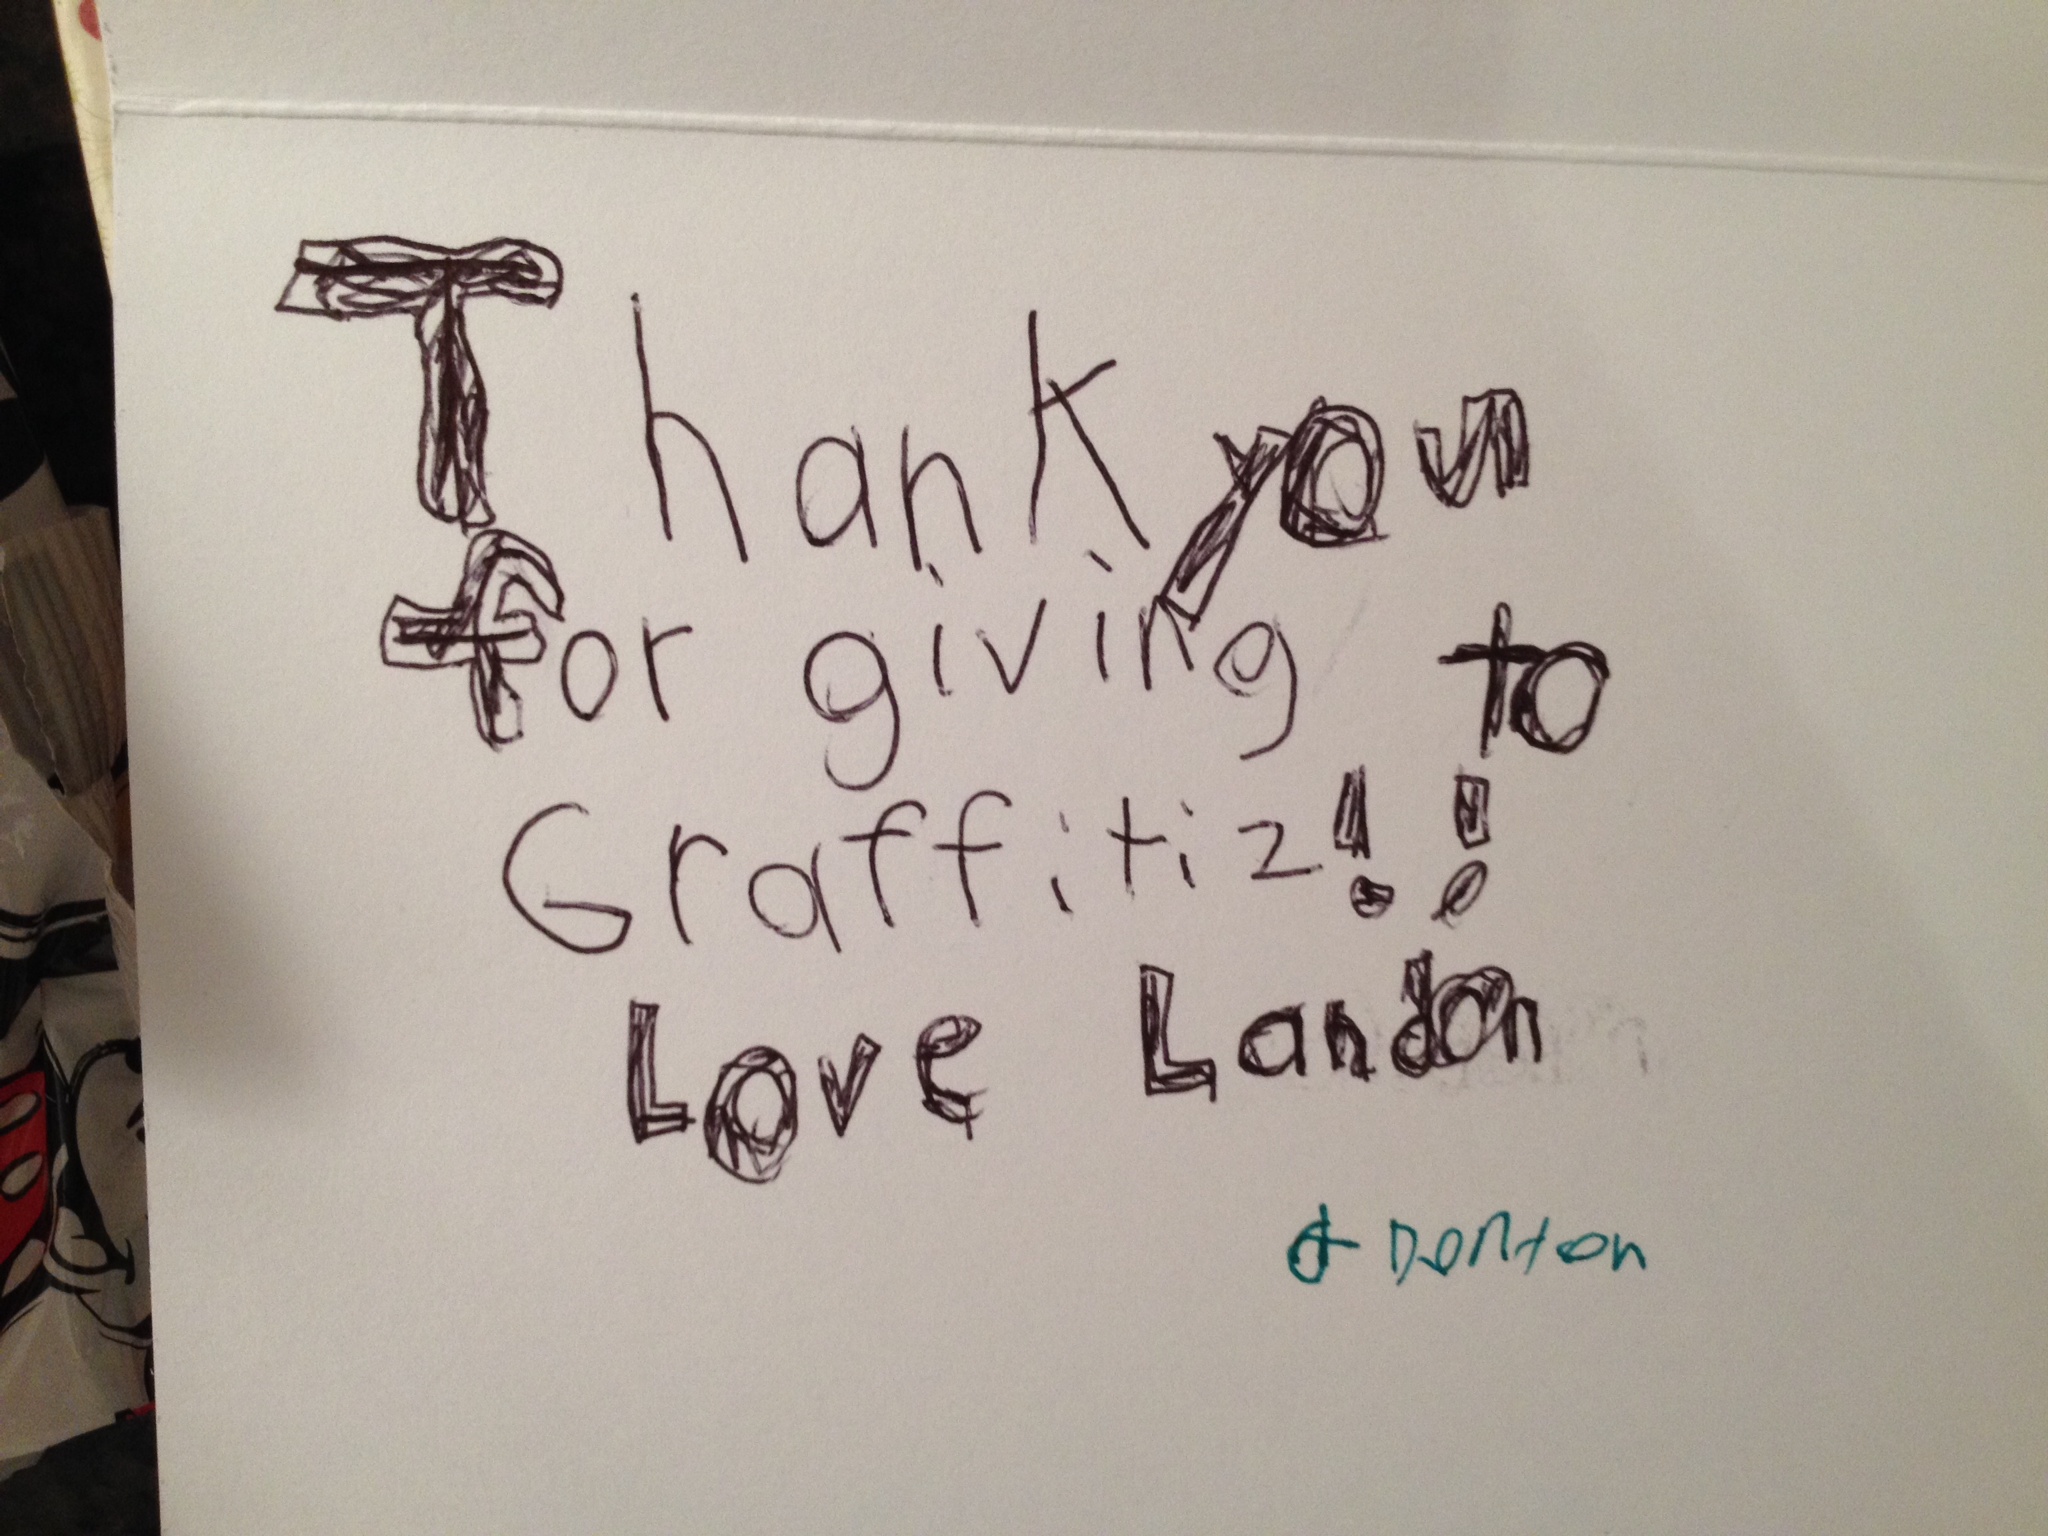 Thank you
for giving to
Graffitiz!!
Love Landon
& Denton